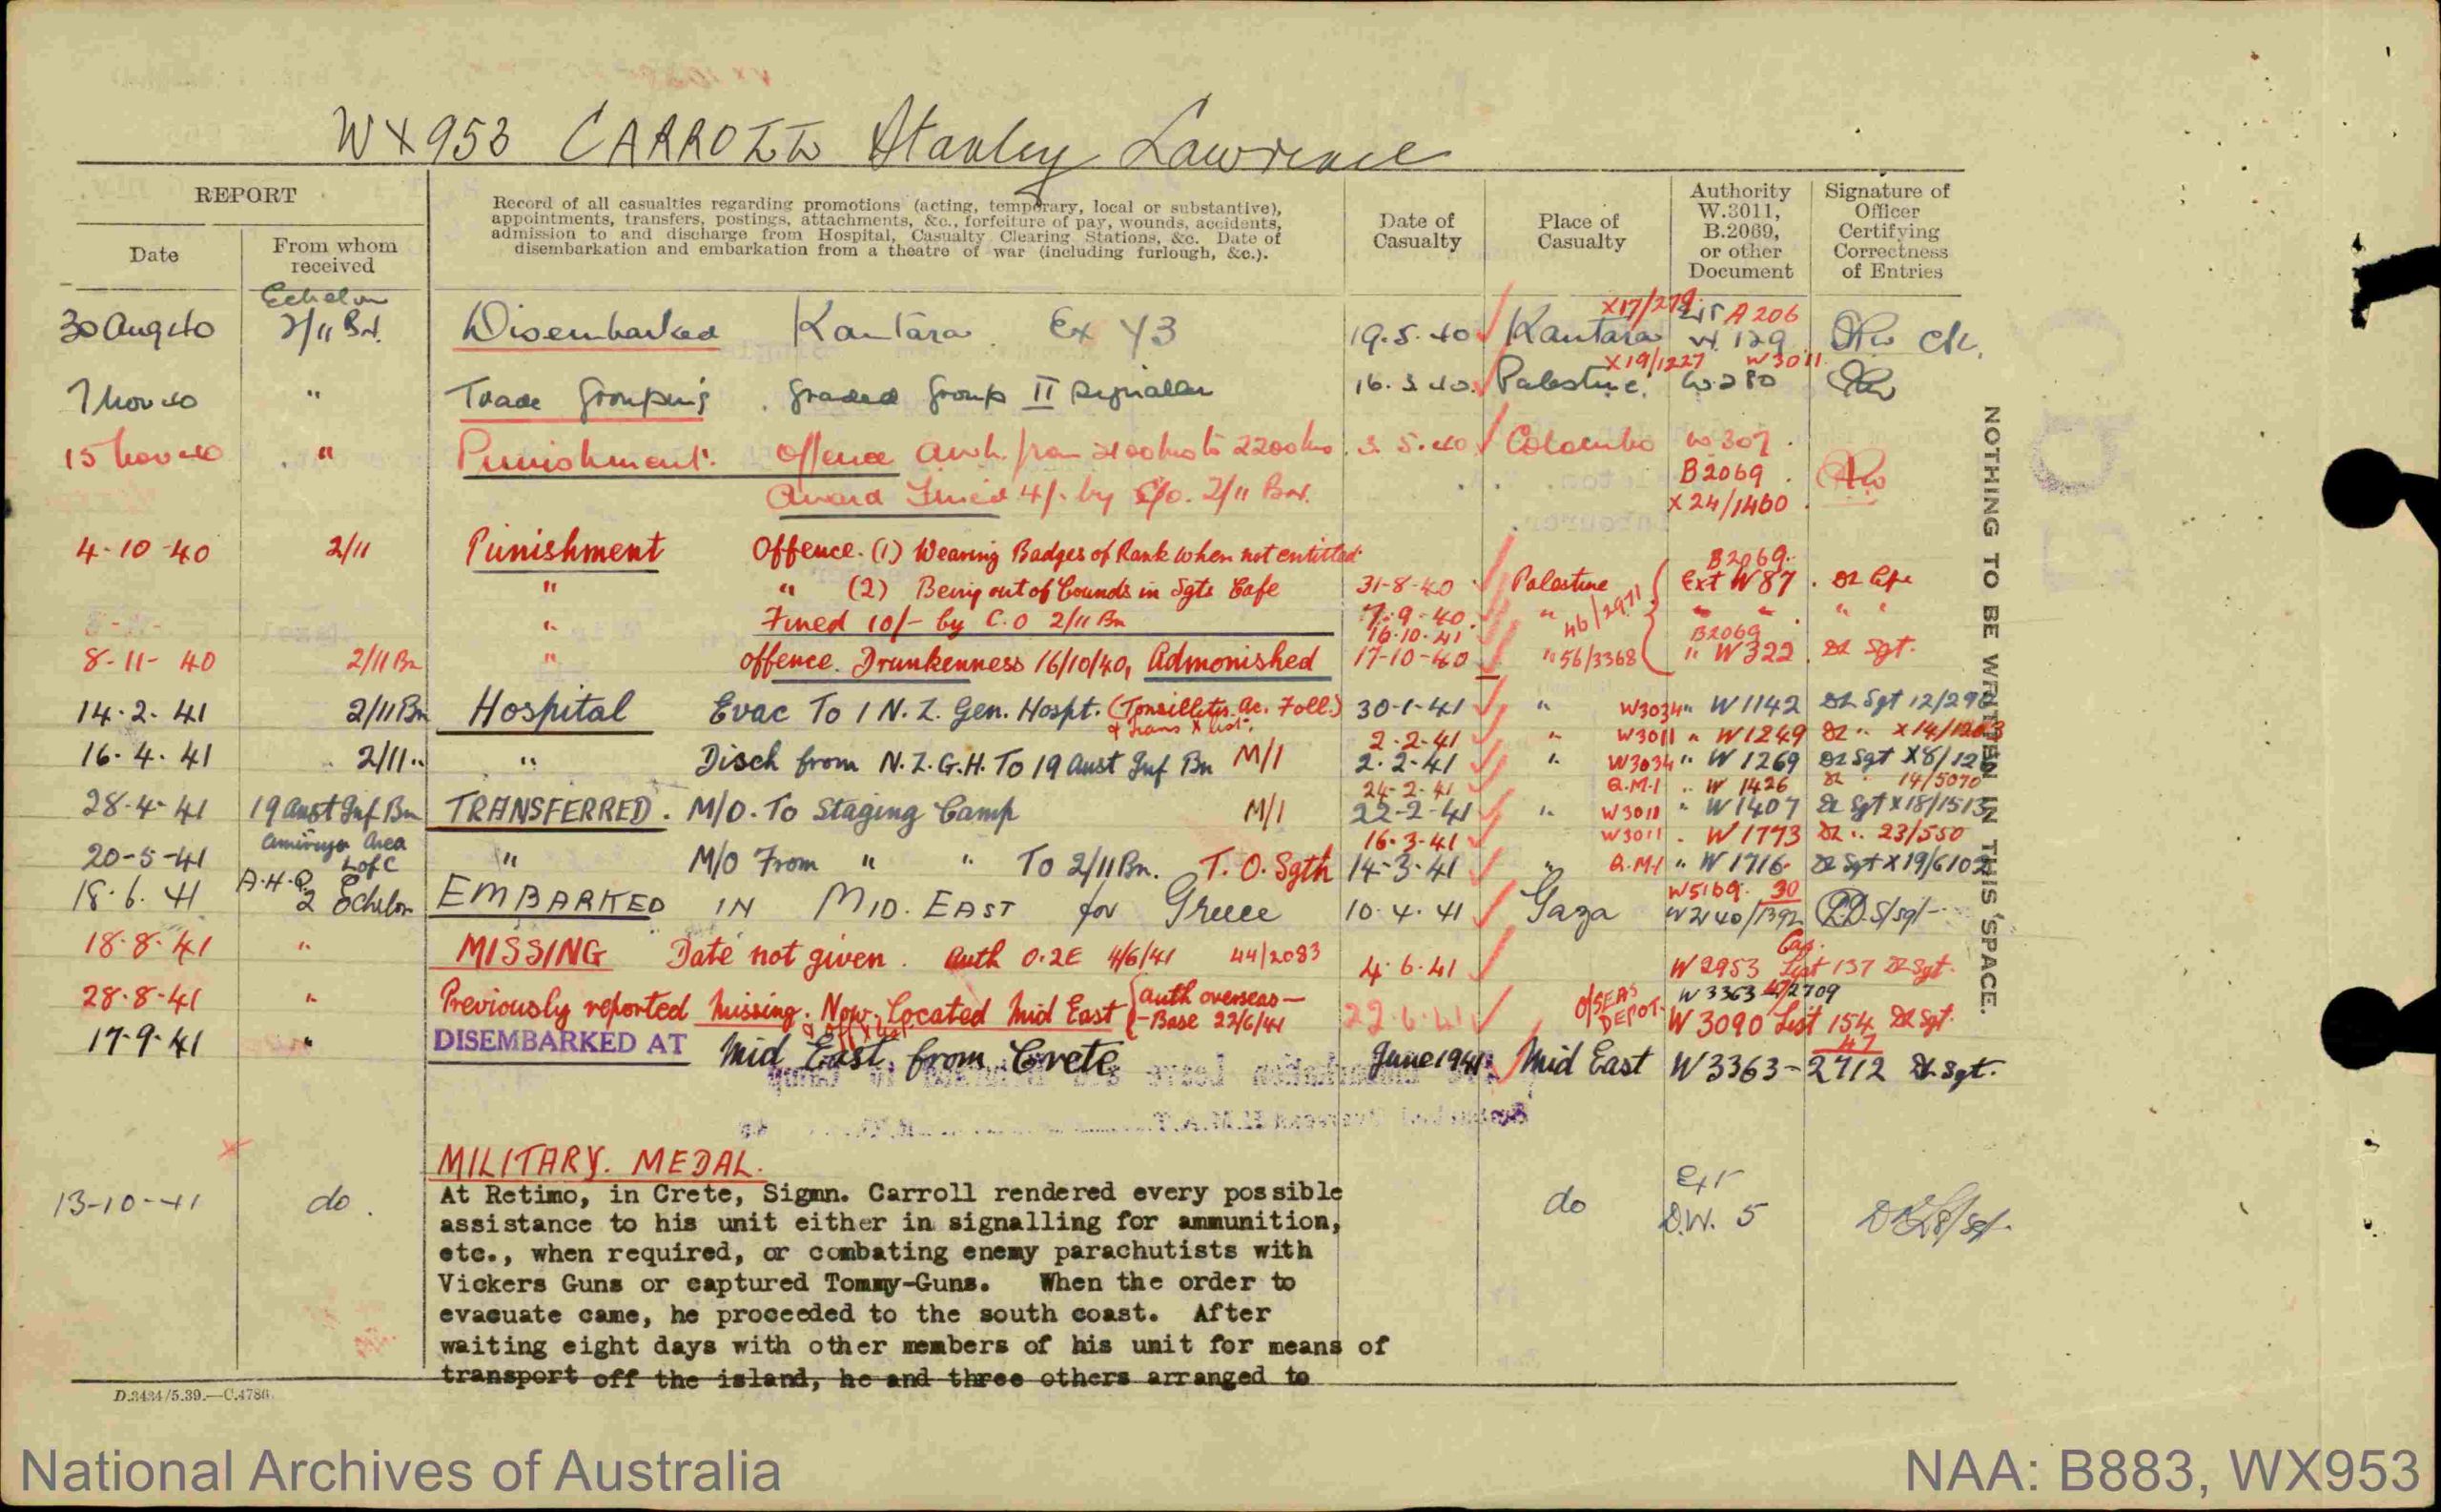 WX953 CARROLL Stanley Lawrence
REPORT
Date
From whom received
Record of all casualties regarding promotions (acting, temporary, local or substantive),
appointments, transfers, postings, attachments, &c., forfeiture of pay, wounds, accidents,
admission to and discharge from Hospital, Casualty Clearing Stations, &c. Date of
disembarkation and embarkation from a theatre of war (including furlough, &c.).
Date of Casualty
Place of Casualty
Authority W.3011, B.2069, or other Document
Signature of Officer Certifying Correctness of Entries
Echelon X17/279 A206
30 Aug 40 2/11 Bn. Disembarked Kantara Ex Y3 19.5.40 Kantara W 129
X19/1227 W3011
7 Nov 40 " Trade Grouping. Graded Group II Signaller Palestine. W.280
15 Nov 40 " Punishment. Offence Awl. from 2100hrs to 2200hrs. 3.5.40 Colombo W307.
B2069.
Award Fined 4/- by C/o. 2/11 Bn.
X24/1460.
4-10-40 2/11 Punishment Offence. (1) Wearing Badges of Rank when not entitled. B2069.
" " (2) Being out of Bounds in Sgts Cafe 31-8-40 Palestine Ext W87.
" Fined 10/- by C.O 2/11 Bn 7-9-40. " 46/2971 " "
16.10.41 B2069
8-11-40 2/11 Bn " offence. Drunkenness 16/10/40, Admonished 17-10-40 " 56/3368 " W322. Sgt.
14.2.41 2/11 Bn Hospital Evac To 1 N.Z. Gen. Hospt. (Tonsillitis Ac. Foll.) 30-1-41 " W3034 " W1142 Sgt 12/29
2.2.41 " W3011 " W1249
16.4.41 2/11 " " Disch from N.Z.G.H. To 19 Aust Inf Bn M/1 2.2.41 " W3034 " W1269 Sgt
24-2-41 Q.M.1 " W1426 14/5070
28.4.41 19 Aust Inf Bn TRANSFERRED. M/O. To Staging Camp M/1 22-2-41 " W3011 " W1407 Sgt X18/1513
Amiriya Area 16.3.41 W3011 W1773 23/550
20-5-41 L of C " M/O From " " To 2/11 Bn. T.O. Sgth 14-3-41 " Q.M.1 " W1716. Sgt X19/6102
18.6.41 A.H.Q. 2 Echelon EMBARKED IN MID. EAST for Greece 10.4.41 Gaza W5169. 30
W2140/1392 S/Sgt
18.8.41 " MISSING Date not given. Auth O.2E 4/6/41 44/2083 4.6.41 W2953 List 137 Sgt.
28.8.41 " Previously reported Missing. Now Located Mid East {Auth overseas—
—Base 22/6/41 22.6.41 O/SEAS DEPOT. W3363 47/2709
W3090 List 154 Sgt.
17.9.41 " DISEMBARKED AT Mid East from Crete June 1941 Mid East W3363- 47
2712 Sgt.
MILITARY. MEDAL.
13-10-41 do. At Retimo, in Crete, Sigmn. Carroll rendered every possible do Ext
assistance to his unit either in signalling for ammunition, D.W. 5
etc., when required, or combating enemy parachutists with
Vickers Guns or captured Tommy-Guns. When the order to
evacuate came, he proceeded to the south coast. After
waiting eight days with other members of his unit for means of
transport off the island, he and three others arranged to
D.3434/5.39.—C.4786.
NOTHING TO BE WRITTEN IN THIS SPACE.
National Archives of Australia
NAA: B883, WX953